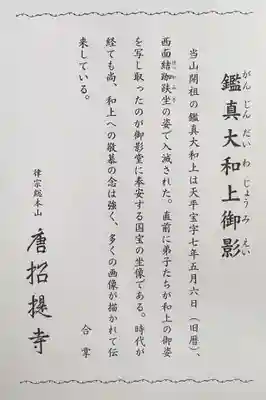 鑑真大和上御影
がんじんだいわじょうみえい
当山開祖の鑑真大和上は天平宝字七年五月六日（旧暦）、
西面結跏趺坐の姿で入滅された。直前に弟子たちが和上の御姿
けっかふざ
を写し取ったのが御影堂に奉安する国宝の坐像である。時代が
経ても尚、和上への敬慕の念は強く、多くの画像が描かれて伝
来している。
合掌
律宗総本山
唐招提寺